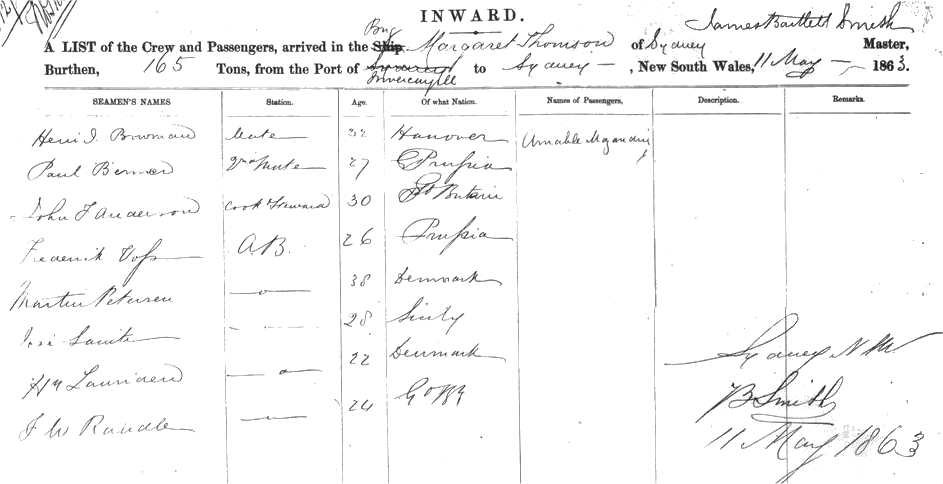 INWARD.
James Bartlett Smith
Brig
A LIST of the Crew and Passengers, arrived in the Ship Margaret Thomson of Sydney Master,
Burthen, 165 Tons, from the Port of Invercargill to Sydney, New South Wales, 11 May 1863.
SEAMEN'S NAMES Station. Age. Of what Nation. Names of Passengers, Description. Remarks.
Mate 22 Hanover Amable
Paul 2nd Mate 27 Prussia
John F Anderson Cook Steward 30 Gt Britain
Frederik Voss A.B. 26 Prussia
Martin Petersen —o— 38 Denmark
28 Sicily
—o— 22 Denmark
F W Randle 24
Sydney
JB Smith
11 May 1863